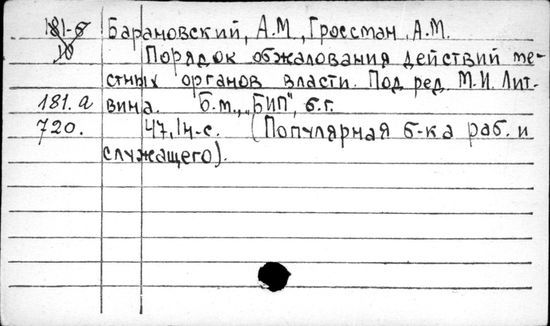 181-б Барановский, А.М., Гроссман А.М.
10 Порядок обжалования действий ме-
стных органов власти. Под ред. М.И. Лит-
181.а вина. Б.м., „БИП", б.г.
720. 47,1н-с. (Популярная б-ка раб. и
служащего).